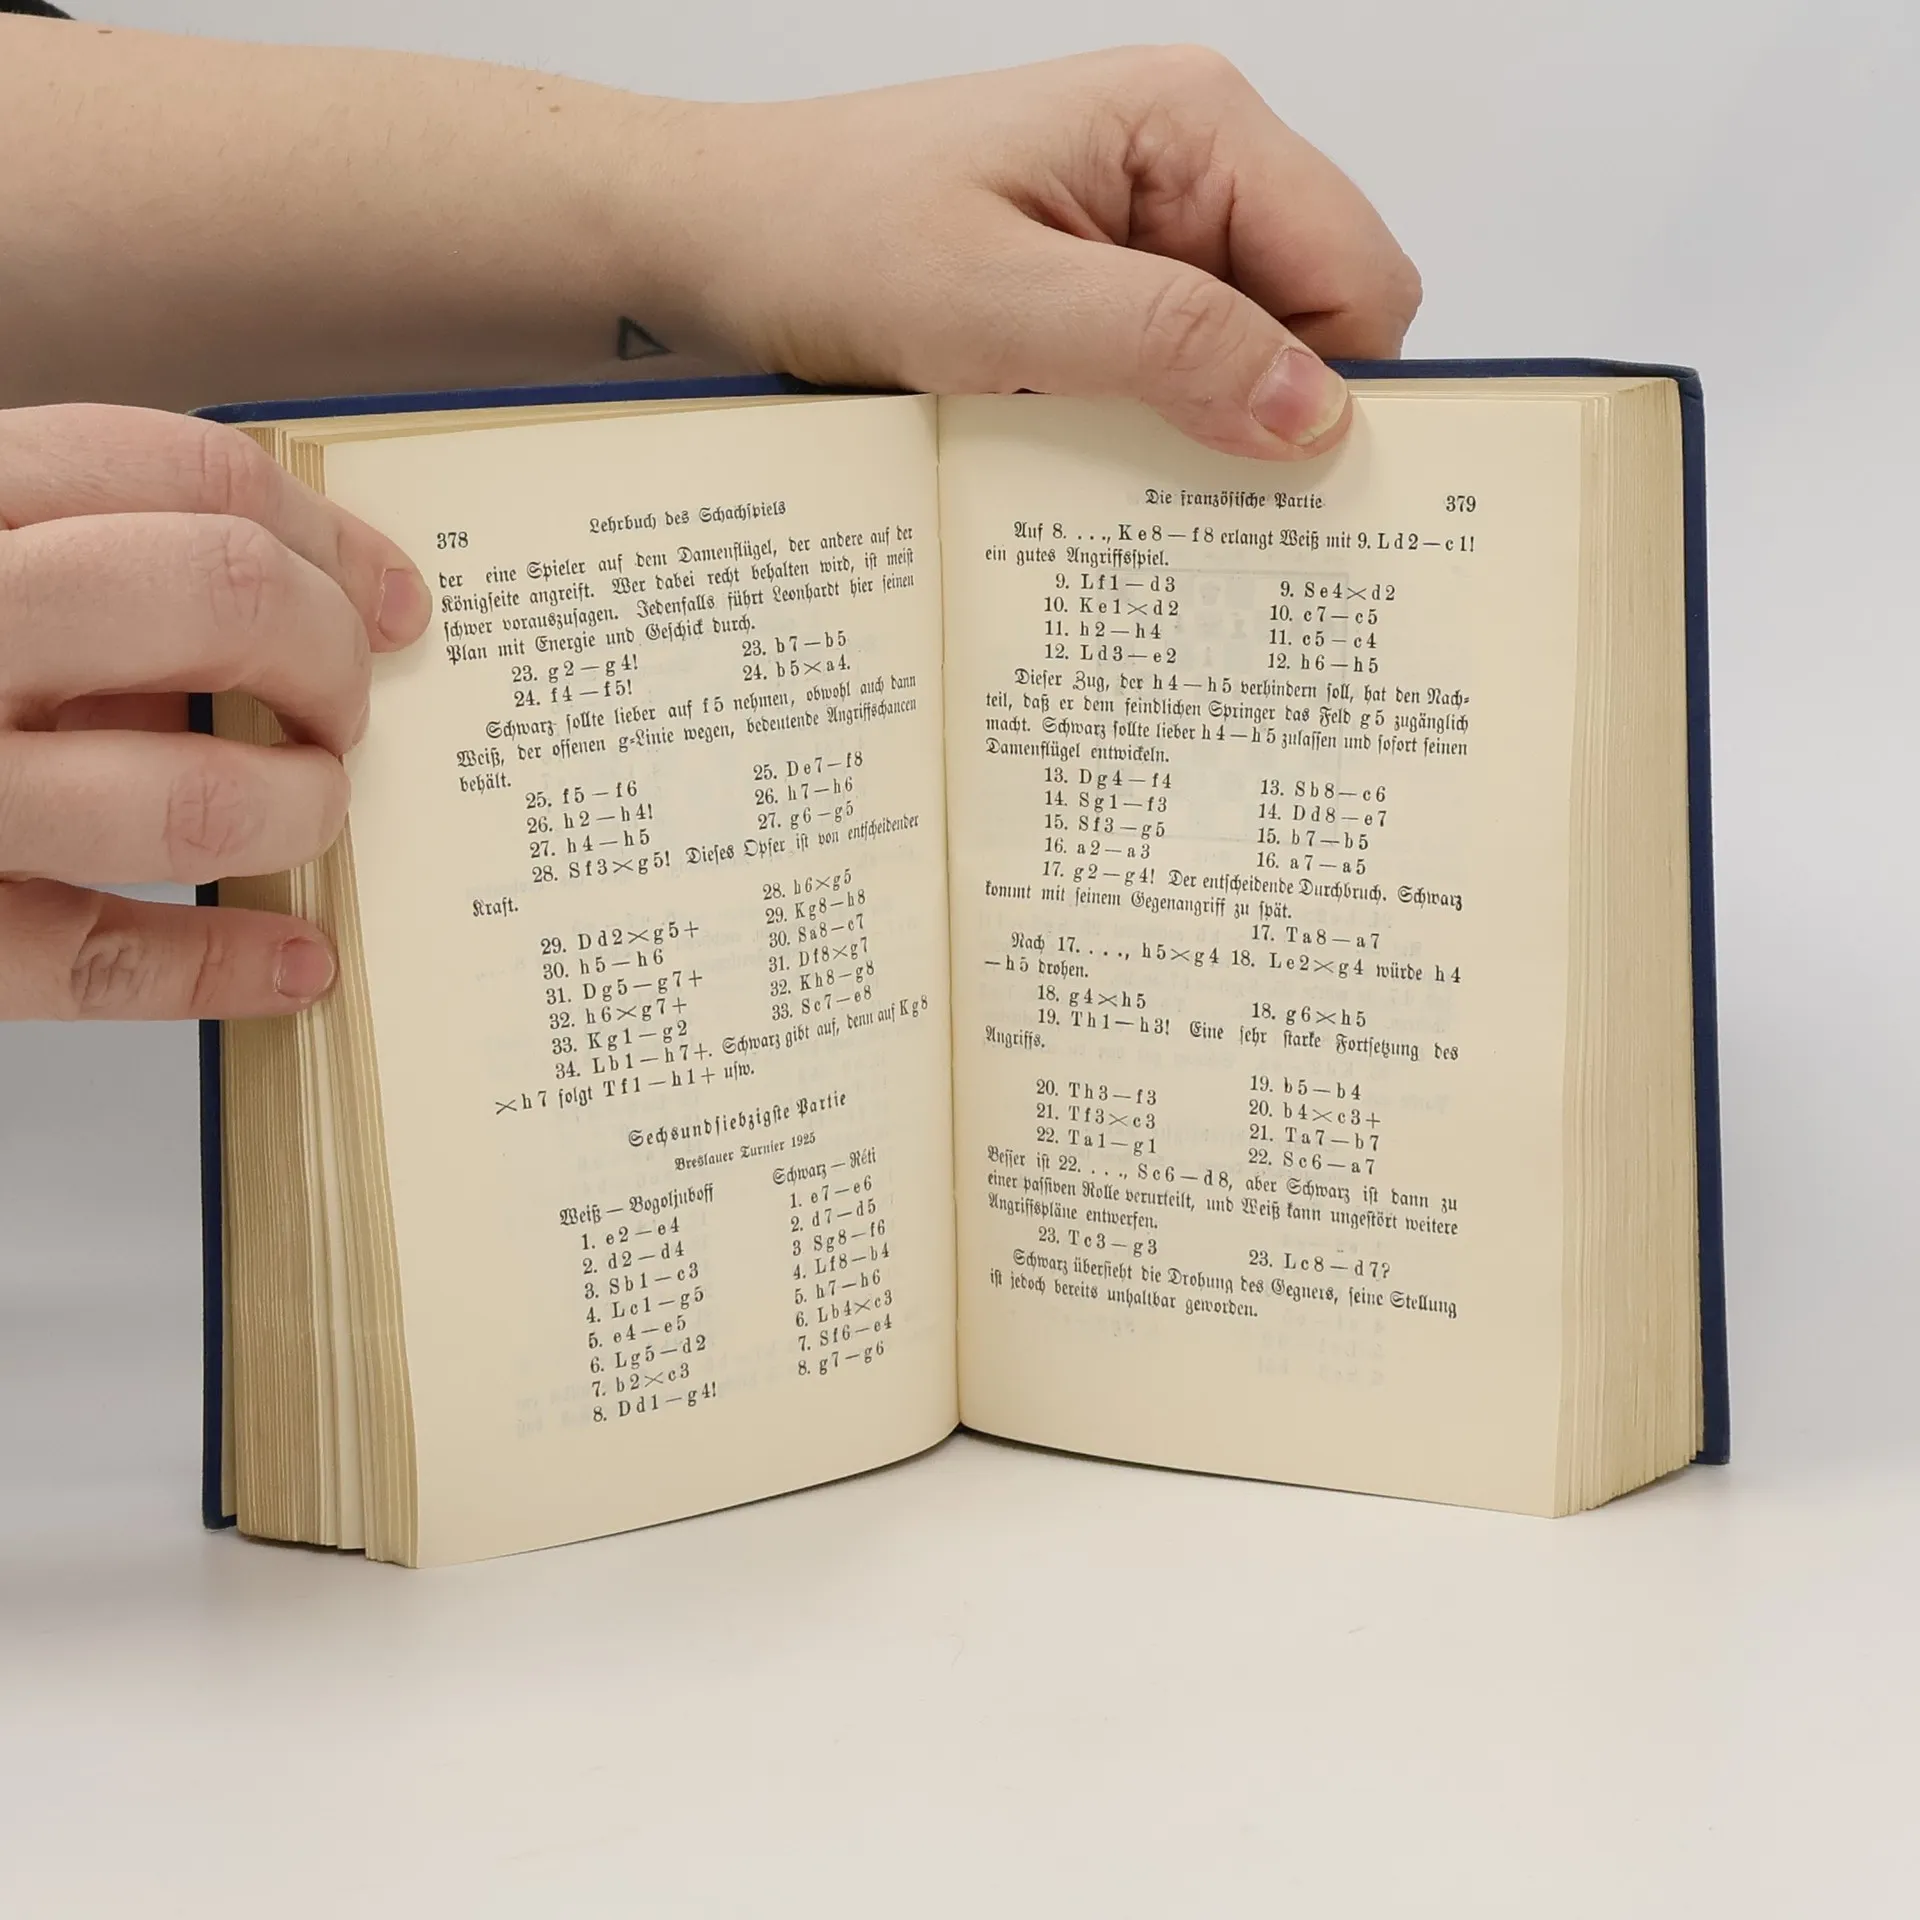 378
Lehrbuch des Schachspiels
der eine Spieler auf dem Damenflügel, der andere auf der
Königseite angreift. Wer dabei recht behalten wird, ist meist
schwer vorauszusagen. Jedenfalls führt Leonhardt hier seinen
Plan mit Energie und Geschick durch.
23. g2—g4! 23. b7—b5
24. f4—f5! 24. b5×a4.
Schwarz sollte lieber auf f5 nehmen, obwohl auch dann
Weiß, der offenen g-Linie wegen, bedeutende Angriffschancen
behält.
25. f5—f6 25. De7—f8
26. h2—h4! 26. h7—h6
27. h4—h5 27. g6—g5
28. Sf3×g5! Dieses Opfer ist von entscheidender
Kraft.
28. h6×g5
29. Dd2×g5+ 29. Kg8—h8
30. h5—h6 30. Sa8—c7
31. Dg5—g7+ 31. Df8×g7
32. h6×g7+ 32. Kh8—g8
33. Kg1—g2 33. Sc7—e8
34. Lb1—h7+. Schwarz gibt auf, denn auf Kg8
×h7 folgt Tf1—h1+ usw.
Sechsundsiebzigste Partie
Breslauer Turnier 1925
Weiß — Bogoljuboff Schwarz — Réti
1. e2—e4 1. e7—e6
2. d2—d4 2. d7—d5
3. Sb1—c3 3 Sg8—f6
4. Lc1—g5 4. Lf8—b4
5. e4—e5 5. h7—h6
6. Lg5—d2 6. Lb4×c3
7. b2×c3 7. Sf6—e4
8. Dd1—g4! 8. g7—g6
Die französische Partie
379
Auf 8. . . ., Ke8—f8 erlangt Weiß mit 9. Ld2—c1!
ein gutes Angriffsspiel.
9. Lf1—d3 9. Se4×d2
10. Ke1×d2 10. c7—c5
11. h2—h4 11. c5—c4
12. Ld3—e2 12. h6—h5
Dieser Zug, der h4—h5 verhindern soll, hat den Nach-
teil, daß er dem feindlichen Springer das Feld g5 zugänglich
macht. Schwarz sollte lieber h4—h5 zulassen und sofort seinen
Damenflügel entwickeln.
13. Dg4—f4 13. Sb8—c6
14. Sg1—f3 14. Dd8—e7
15. Sf3—g5 15. b7—b5
16. a2—a3 16. a7—a5
17. g2—g4! Der entscheidende Durchbruch. Schwarz
kommt mit seinem Gegenangriff zu spät.
17. Ta8—a7
Nach 17. . . ., h5×g4 18. Le2×g4 würde h4
—h5 drohen.
18. g4×h5 18. g6×h5
19. Th1—h3! Eine sehr starke Fortsetzung des
Angriffs.
19. b5—b4
20. Th3—f3 20. b4×c3+
21. Tf3×c3 21. Ta7—b7
22. Ta1—g1 22. Sc6—a7
Besser ist 22. . . ., Sc6—d8, aber Schwarz ist dann zu
einer passiven Rolle verurteilt, und Weiß kann ungestört weitere
Angriffspläne entwerfen.
23. Tc3—g3 23. Lc8—d7?
Schwarz übersieht die Drohung des Gegners, seine Stellung
ist jedoch bereits unhaltbar geworden.